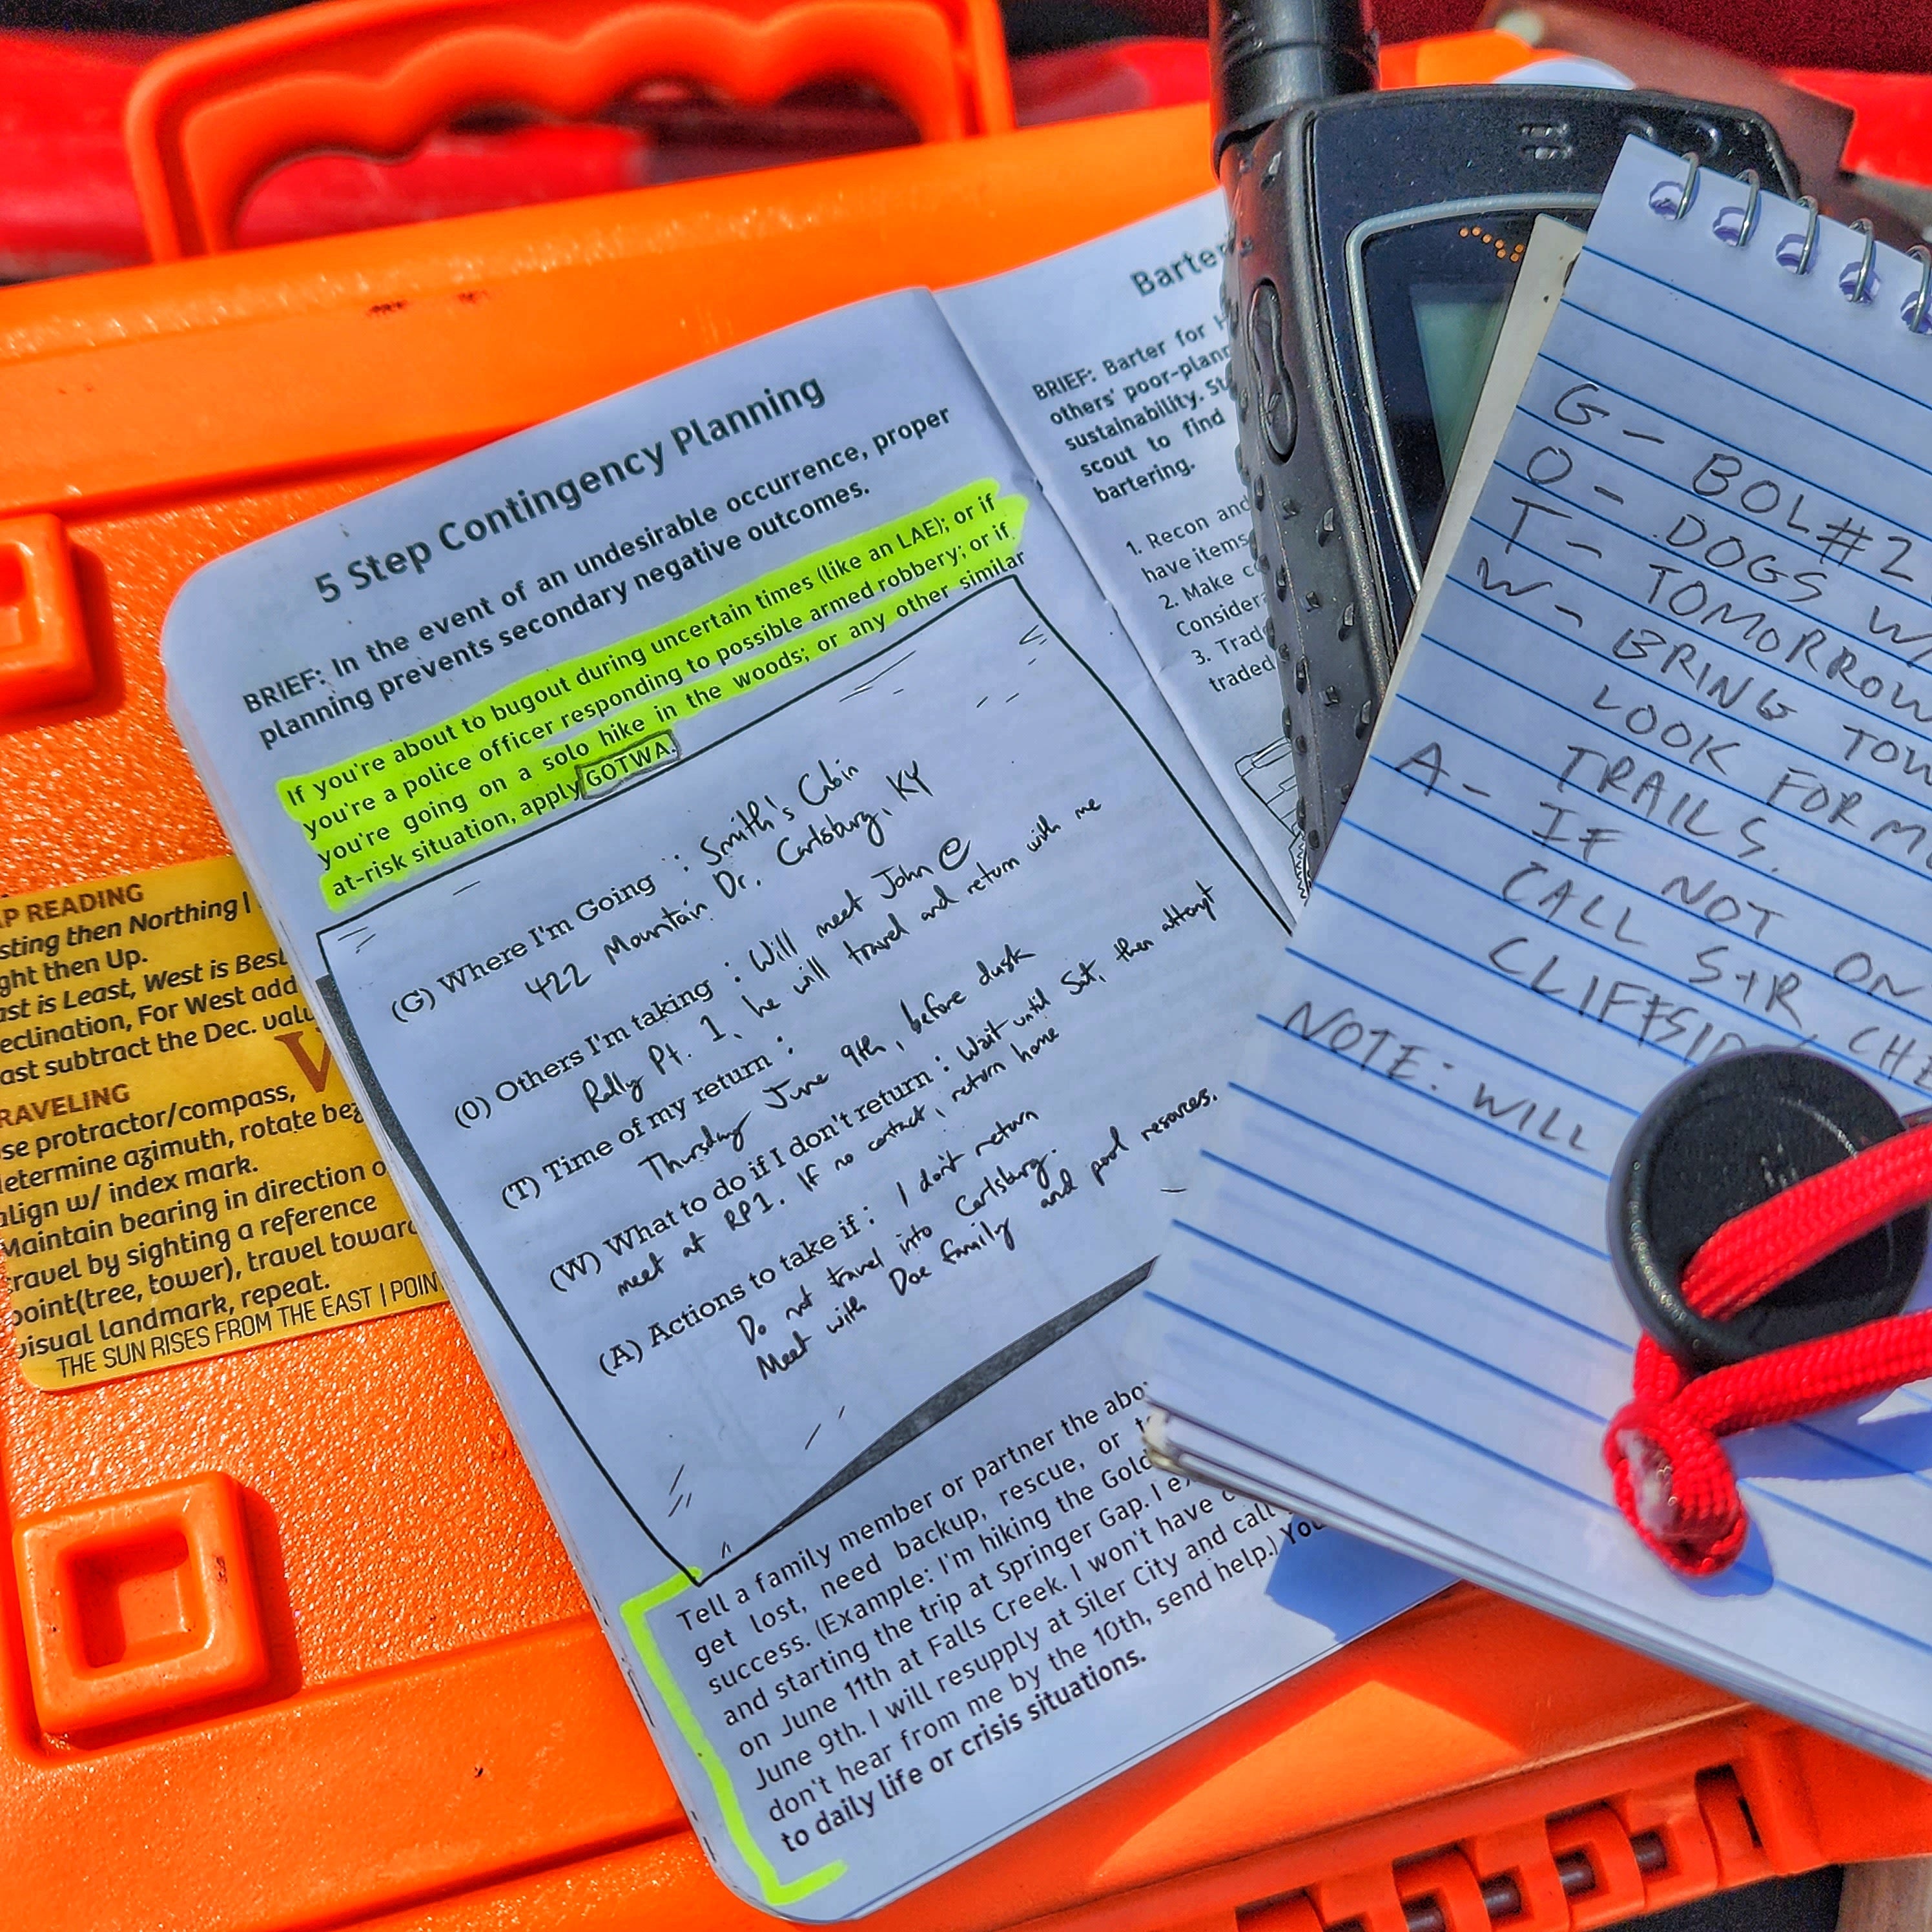 5 Step Contingency Planning
BRIEF: In the event of an undesirable occurrence, proper
planning prevents secondary negative outcomes.
If you're about to bugout during uncertain times (like an LAE); or if
you're a police officer responding to possible armed robbery; or if
you're going on a solo hike in the woods; or any other similar
at-risk situation, apply GOTWA.
(G) Where I'm Going : Smith's Cabin
422 Mountain Dr. Carlsburg, KY
(O) Others I'm taking : Will meet John @
Rally Pt. 1, he will travel and return with me
(T) Time of my return :
Thursday June 9th, before dusk
(W) What to do if I don't return : Wait until Sat, then attempt
meet at RP1. If no contact, return home
(A) Actions to take if : I don't return
Do not travel into Carlsburg.
Meet with Doe family and pool resources.
Tell a family member or partner the
get lost, need backup, rescue, or
success. (Example: I'm hiking the
and starting the trip at Springer Gap. I
on June 11th at Falls Creek. I won't have
June 9th. I will resupply at Siler City and call
don't hear from me by the 10th, send help.)
to daily life or crisis situations.
BRIEF: Barter for
others'
sustainability.
scout to find
bartering.
1. Recon and
have items
2. Make
3.
traded
G - BOL#2
O - DOGS
T - TOMORROW
W - BRING
LOOK FOR
TRAILS.
A - IF NOT ON
CALL S+R,
NOTE: WILL
READING
then Northing
then Up.
is Least, West is Best
For West add
subtract the Dec.
protractor/compass,
azimuth, rotate
w/ index mark.
Maintain bearing in direction
by sighting a reference
(tree, tower), travel
landmark, repeat.
THE SUN RISES FROM THE EAST |